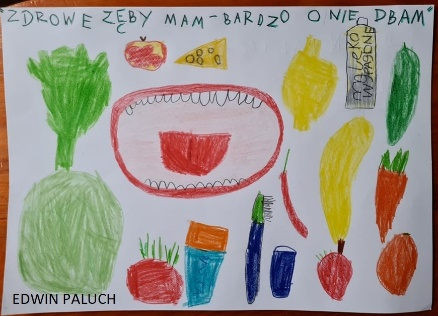 "ZDROWE ZĘBY MAM-BARDZO O NIE DBAM"
mleko
WAPNIOWE
EDWIN PALUCH